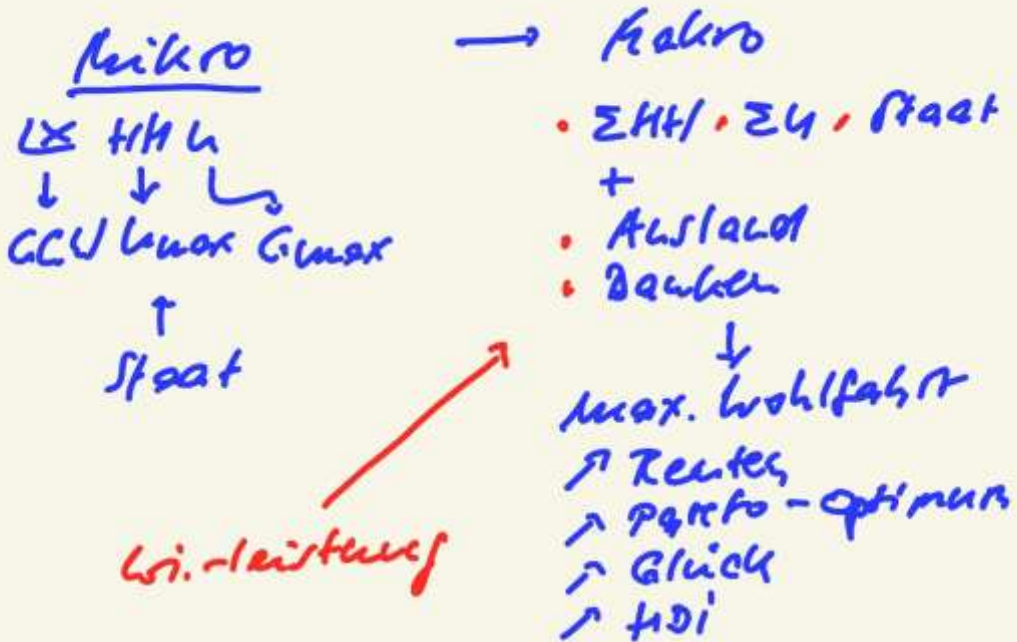 Mikro
→ Makro
HH U
↓ ↓
GGW Nmax Gmax
↑
Staat
• ΣHH • ΣU • Staat
+
• Ausland
• Banken
↓
max. Wohlfahrt
↗ Renten
↗ Pareto-Optimum
↗ Glück
↗ HDI
Wi.-leistung